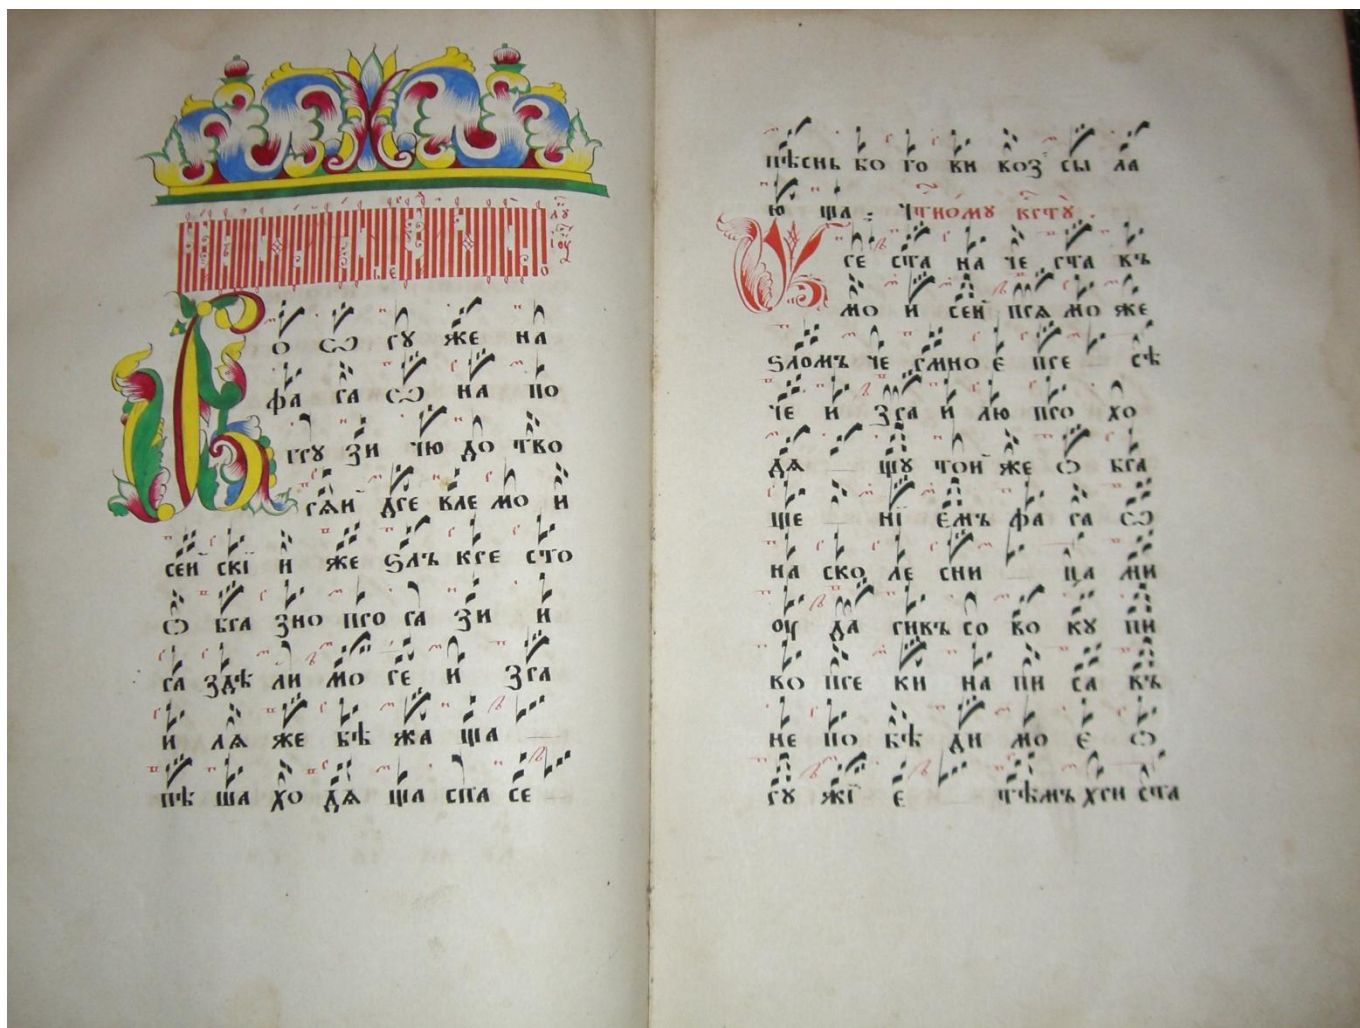 о ѡ рꙋ же на
фа ра ѡ на по
грꙋ зи чю до тво
рѧй дре вле мо и
сей скїй и же ѕлъ кре сто
ѡ бра зно про ра зи и
ра здѣ ли мо ре и зра
и лѧ же бѣ жа ща
пѣ ша хо дѧ ща спа се
пѣснь бо го ви воз сы ла
ю ща . Чтно́мꙋ кр҃стꙋ̀ .
ге ста на че ста въ
мо и сей прѧ мо же
ѕломъ че рмно е пре сѣ
че и зра и лю про хо
дѧ щꙋ той же ѡ бра
ще нї емъ фа ра ѡ
на ско ле сни ца ми
оу да ривъ со во кꙋ пи
во пре ки на пи са въ
не по бѣ ди мо е ѡ
рꙋ жї е тѣмъ хри ста